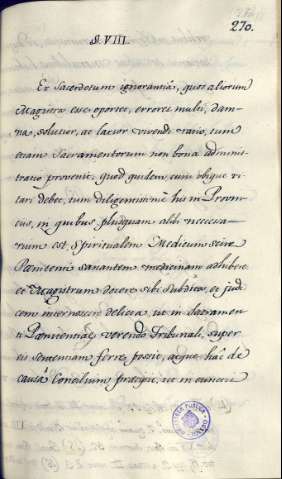 270.
§. VIII.
Ex Sacerdotum ignorantia, quos aliorum
Magistra esse oportet, errores multi, dam-
na, solutior, ac laxior vivendi ratio, tum
etiam Sacramentorum non bona adminis-
tratio provenit: quod quidem cum ubique vi-
tari debet, tum diligentissime his in Provin-
ciis, in quibus plusquam alibi necessa-
rium est, Spiritualem Medicum scire
Pœnitentis sanantem medicinam adhibere
et Magistrum docere sibi Subditos, et Judi-
cem internoscere delicta, ut in
Pœnitentiæ verendo Tribunali, super
eis Sententiam ferre possit, atque hac de
causa Concilium præcipit, ut in omnibus